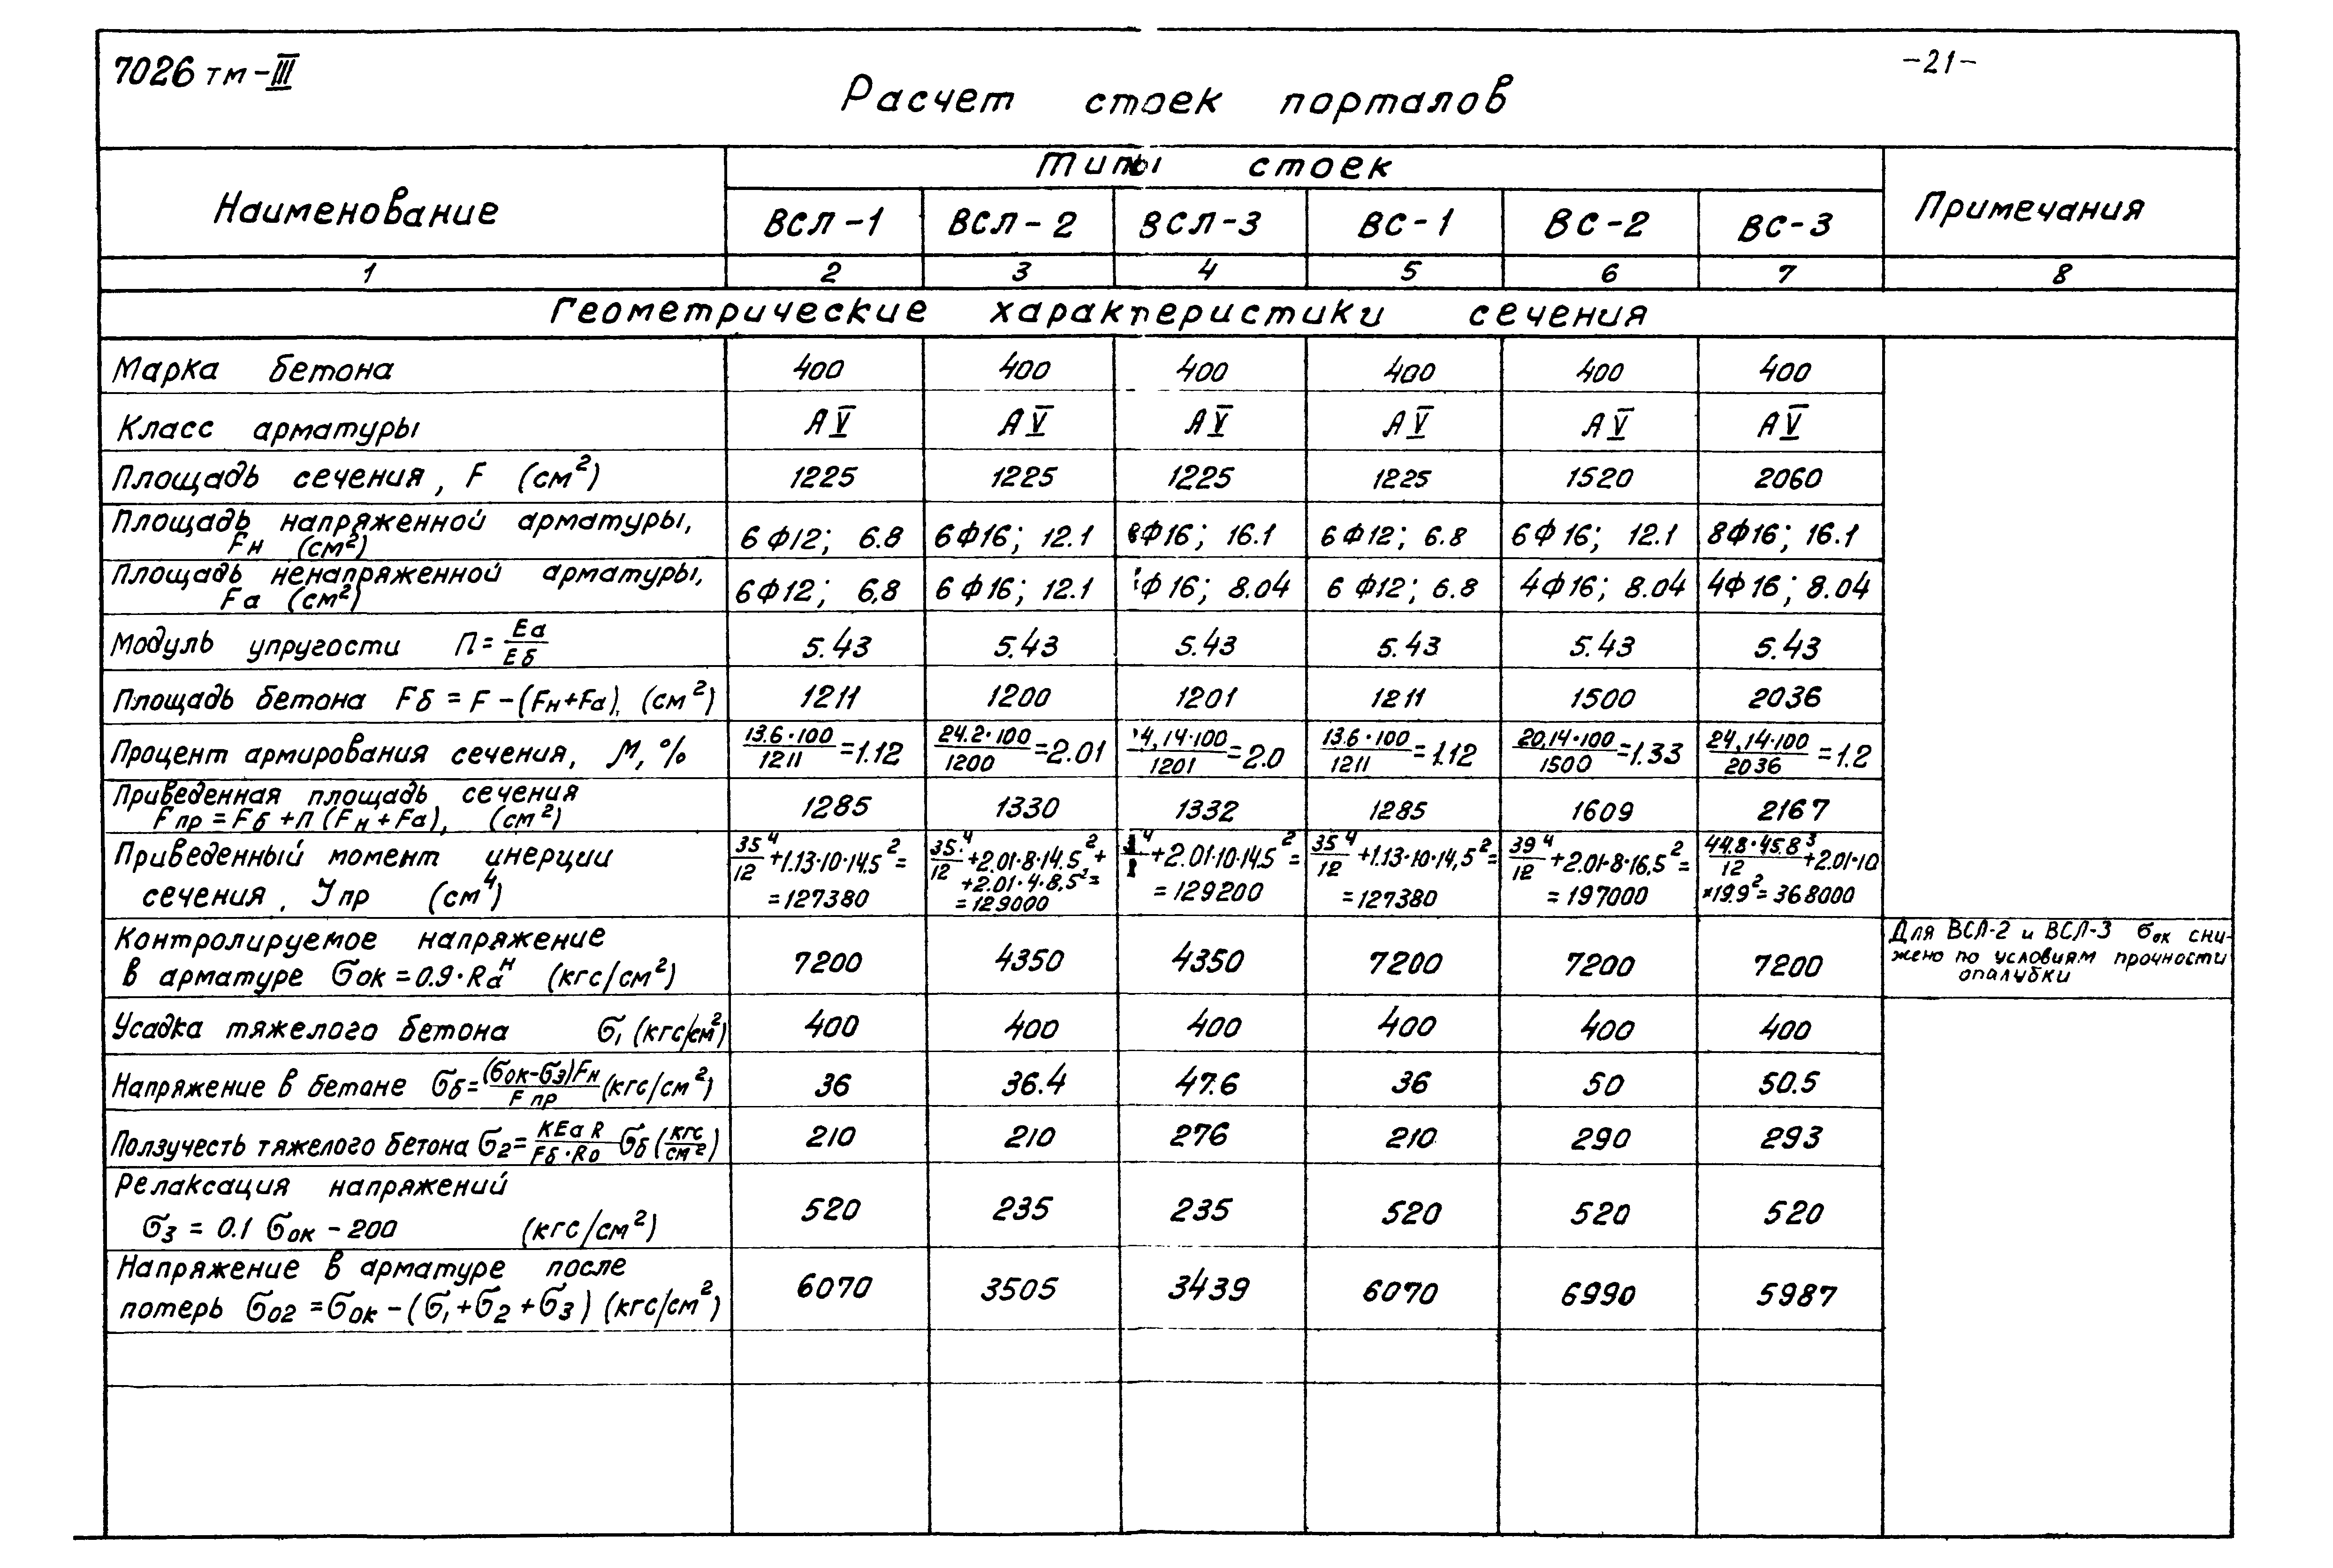 7026 тм-III
-21-
Расчет стоек порталов
Наименование
Типы стоек
Примечания
ВСЛ-1 ВСЛ-2 ВСЛ-3 ВС-1 ВС-2 ВС-3
1 2 3 4 5 6 7 8
Геометрические характеристики сечения
Марка бетона 400 400 400 400 400 400
Класс арматуры АV АV АV АV АV АV
Площадь сечения, F (см²) 1225 1225 1225 1225 1520 2060
Площадь напряженной арматуры,
Fн (см²) 6Ф12; 6.8 6Ф16; 12.1 8Ф16; 16.1 6Ф12; 6.8 6Ф16; 12.1 8Ф16; 16.1
Площадь ненапряженной арматуры,
Fа (см²) 6Ф12; 6,8 6Ф16; 12.1 Ф16; 8.04 6Ф12; 6.8 4Ф16; 8.04 4Ф16; 8.04
Модуль упругости П = Еа/Еб 5.43 5.43 5.43 5.43 5.43 5.43
Площадь бетона Fб = F-(Fн+Fа), (см²) 1211 1200 1201 1211 1500 2036
Процент армирования сечения, М, % 13.6·100/1211=1.12 24.2·100/1200=2.01 4,14·100/1201=2.0 13.6·100/1211=1.12 20,14·100/1500=1.33 24,14·100/2036=1.2
Приведенная площадь сечения
Fпр = Fб + П (Fн + Fа), (см²) 1285 1330 1332 1285 1609 2167
Приведенный момент инерции
сечения, Jпр (см⁴)
35⁴/12+1.13·10·14.5²=
=127380
35⁴/12+2.01·8·14.5²+
+2.01·4·8,5²=
=129000
+2.01·10·14.5²=
=129200
35⁴/12+1.13·10·14,5²=
=127380
39⁴/12+2.01·8·16,5²=
=197000
44.8·45.8³/12+2.01·10
×19.9²=368000
Контролируемое напряжение
в арматуре σок = 0.9·Rан (кгс/см²) 7200 4350 4350 7200 7200 7200
Для ВСЛ-2 и ВСЛ-3 σок сни-
жено по условиям прочности
опалубки
Усадка тяжелого бетона σ₁ (кгс/см²) 400 400 400 400 400 400
Напряжение в бетоне σб=(σок-σ3)Fн/Fпр (кгс/см²) 36 36.4 47.6 36 50 50.5
Ползучесть тяжелого бетона σ2=КЕа R/Fб·Rо σб (кгс/см²) 210 210 276 210 290 293
Релаксация напряжений
σ3 = 0.1 σок - 200 (кгс/см²) 520 235 235 520 520 520
Напряжение в арматуре после
потерь σо2 = σок - (σ₁ + σ2 + σ3) (кгс/см²) 6070 3505 3439 6070 6990 5987